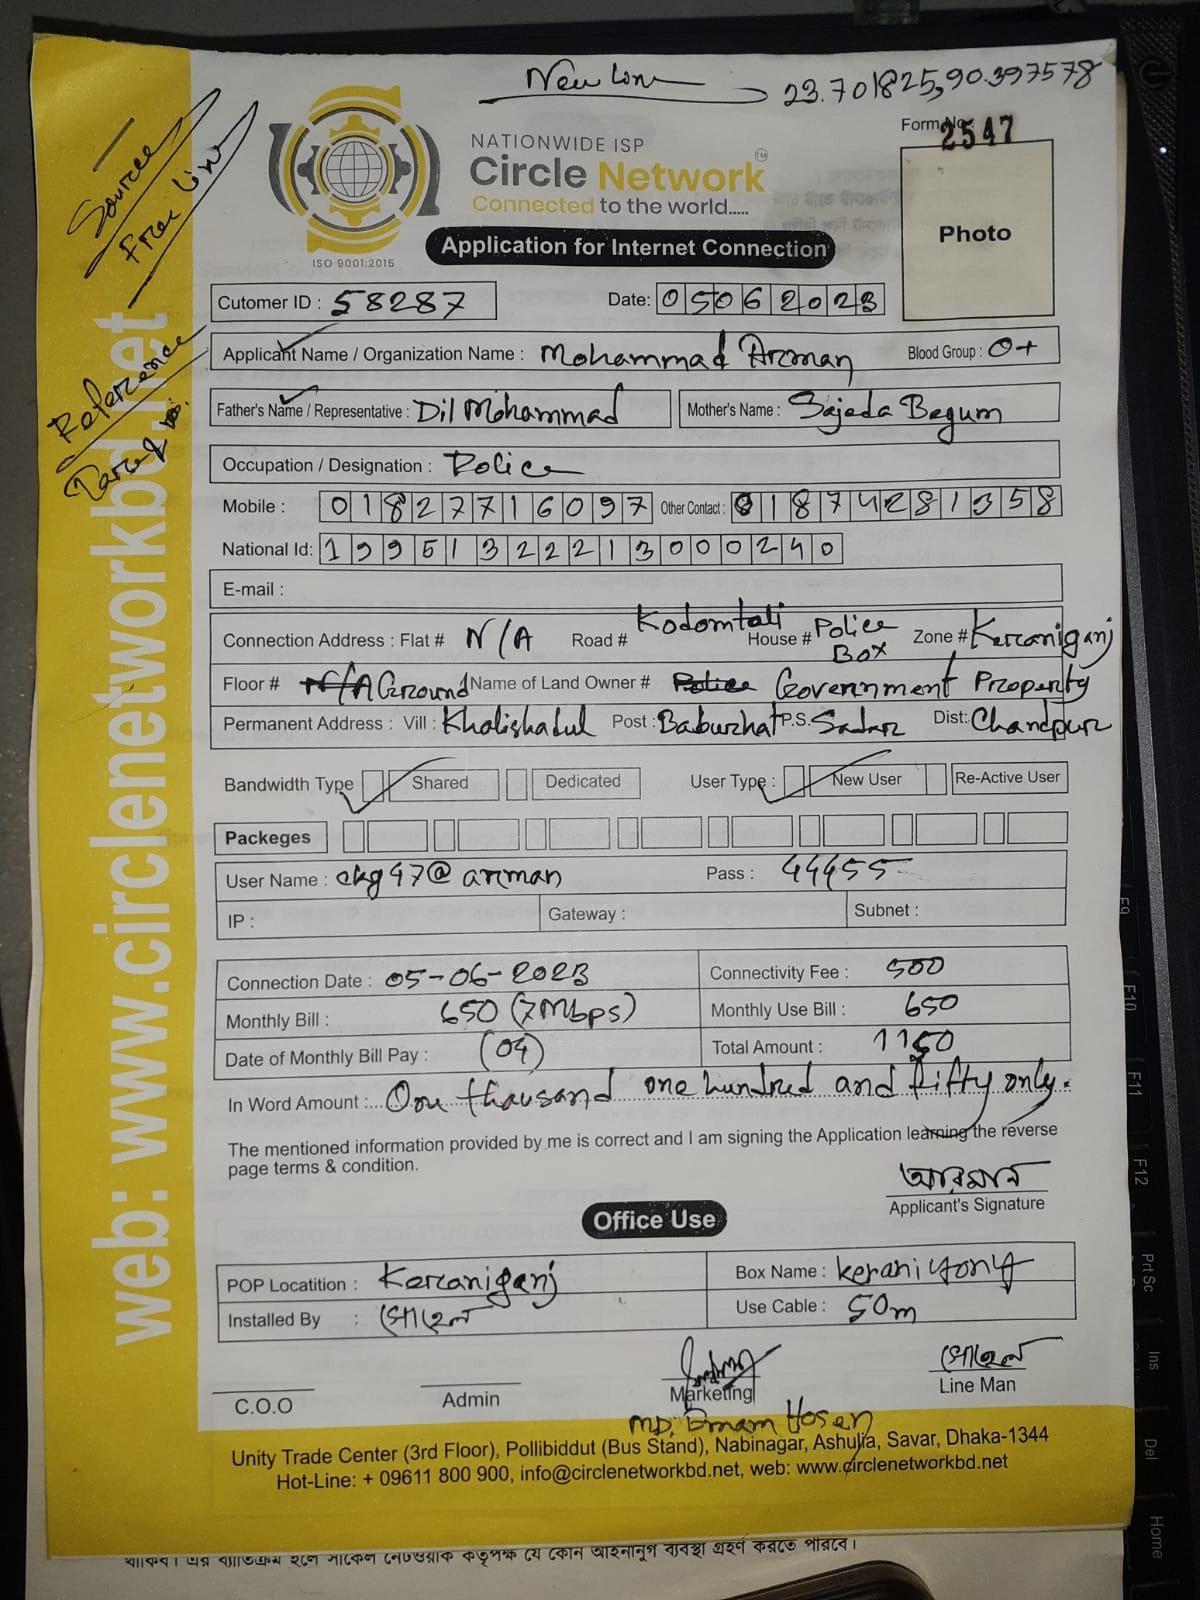 New Line 23.701825,90.397578
Source
Free Line
Reference
web: www.circlenetworkbd.net
NATIONWIDE ISP
Circle Network TM
Connected to the world.....
ISO 9001:2015
Form No. 2547
Photo
Application for Internet Connection
Cutomer ID : 58287 Date: 05062023
Applicant Name / Organization Name : Mohammad Arman Blood Group : O+
Father's Name / Representative : Dil Mohammad Mother's Name : Sajeda Begum
Occupation / Designation : Police
Mobile : 01827716097 Other Contact : 01874281358
National Id: 19951322213000240
E-mail :
Connection Address : Flat # N/A Road # Kodomtali House # Police Box Zone # Keraniganj
Floor # N/A Ground Name of Land Owner # Police Government Property
Permanent Address : Vill : Kholishadul Post : Baburhat P.S. Sadar Dist: Chandpur
Bandwidth Type Shared Dedicated User Type : New User Re-Active User
Packeges
User Name : ckg47@arman Pass : 44455
IP : Gateway : Subnet :
Connection Date : 05-06-2023 Connectivity Fee : 500
Monthly Bill : 650 (7Mbps) Monthly Use Bill : 650
Date of Monthly Bill Pay : (04) Total Amount : 1150
In Word Amount :... One thousand one hundred and fifty only.
The mentioned information provided by me is correct and I am signing the Application learning the reverse
page terms & condition.
আরমান
Applicant's Signature
Office Use
POP Locatition : Keraniganj Box Name : keraniyong
Installed By : সোহেল Use Cable : 50m
সোহেল
C.O.O Admin Marketing Line Man
MD. Emam Hosen
Unity Trade Center (3rd Floor), Pollibiddut (Bus Stand), Nabinagar, Ashulia, Savar, Dhaka-1344
Hot-Line: + 09611 800 900, info@circlenetworkbd.net, web: www.circlenetworkbd.net
থাকিব। এর ব্যতিক্রম হলে সার্কেল নেটওয়ার্ক কতৃপক্ষ যে কোন আইনানুগ ব্যবস্থা গ্রহণ করতে পারবে।
F9
F10
F11
F12
Prt Sc
Ins
Del
Home